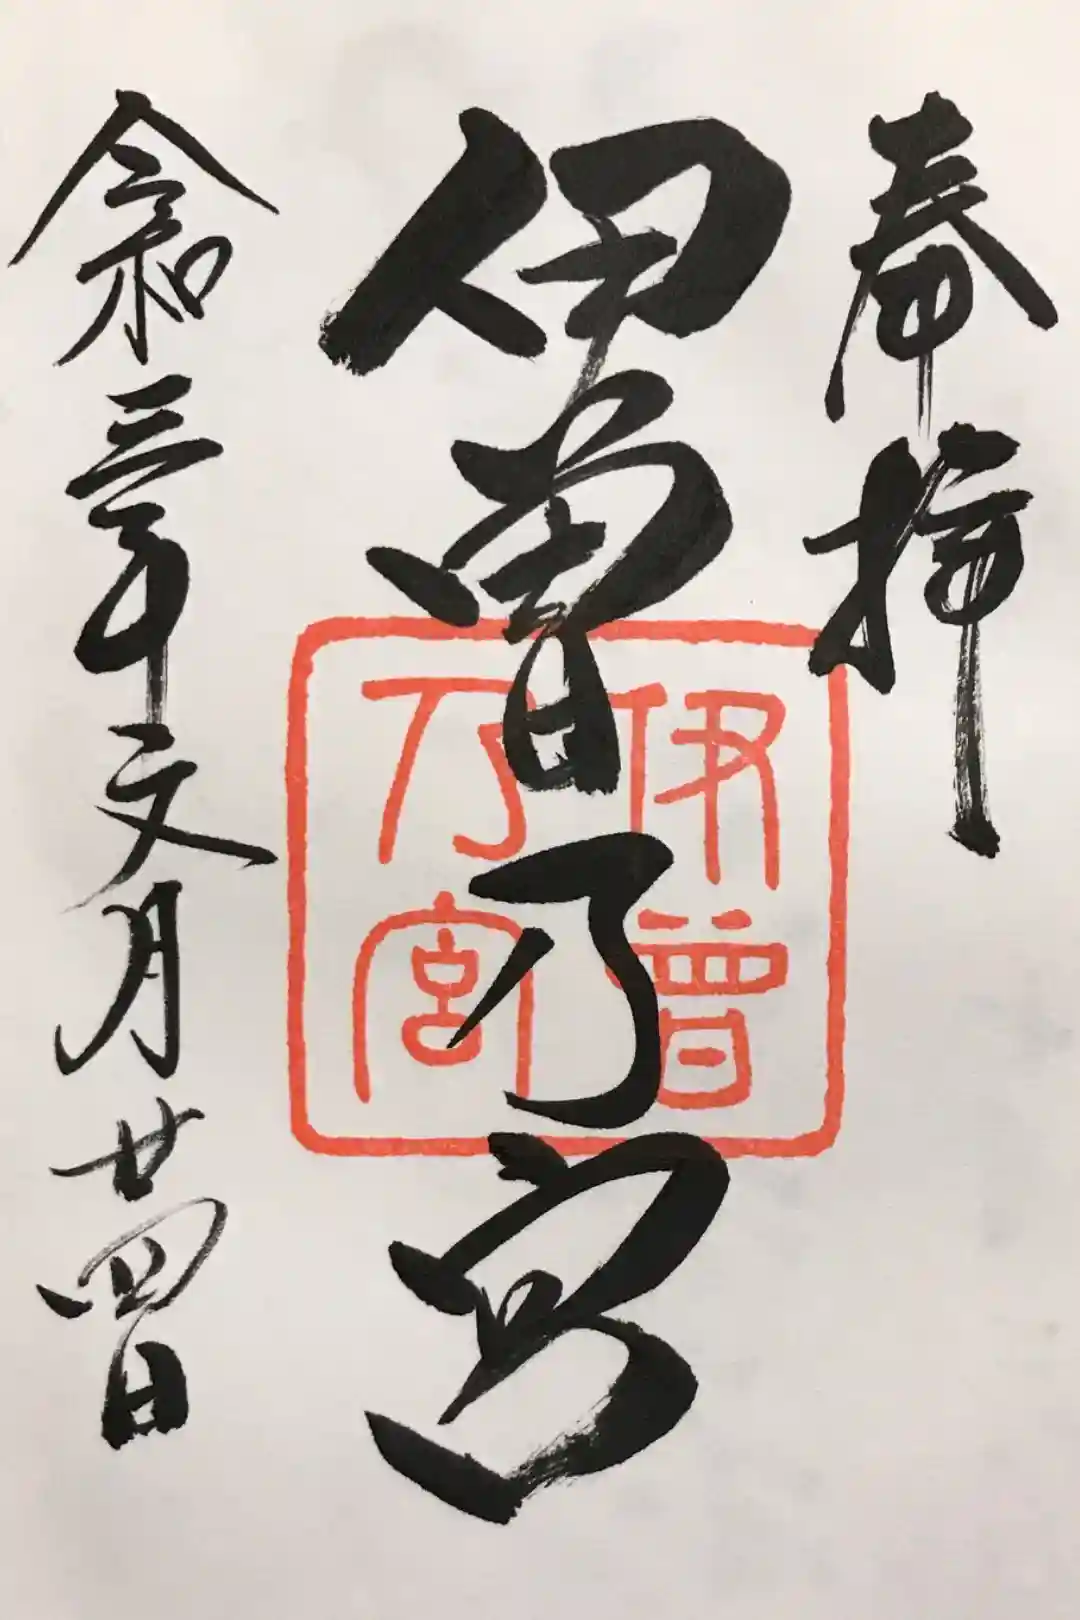 奉拝
伊曽乃宮
伊曽乃宮
令和三年文月廿四日